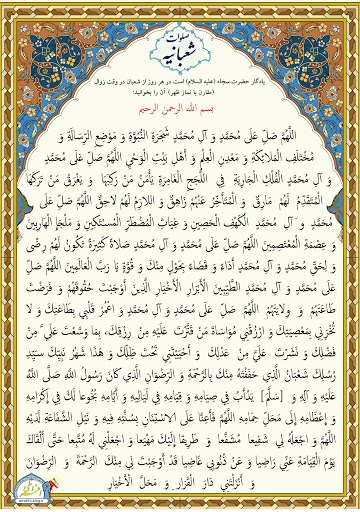 صلوات
شعبانیه
یادگار حضرت سجاد (علیه السلام) است در هر روز از شعبان در وقت زوال
(مقارن با نماز ظهر) آن را بخوانید:
بسم الله الرحمن الرحیم
اَللَّهُمَّ صَلِّ عَلَى مُحَمَّدٍ وَ آلِ مُحَمَّدٍ شَجَرَةِ النُّبُوَّةِ وَ مَوْضِعِ الرِّسَالَةِ وَ
مُخْتَلَفِ الْمَلائِكَةِ وَ مَعْدِنِ الْعِلْمِ وَ أَهْلِ بَيْتِ الْوَحْيِ اللَّهُمَّ صَلِّ عَلَى مُحَمَّدٍ
وَ آلِ مُحَمَّدٍ الْفُلْكِ الْجَارِيَةِ فِي اللُّجَجِ الْغَامِرَةِ يَأْمَنُ مَنْ رَكِبَهَا وَ يَغْرَقُ مَنْ تَرَكَهَا
الْمُتَقَدِّمُ لَهُمْ مَارِقٌ وَ الْمُتَأَخِّرُ عَنْهُمْ زَاهِقٌ وَ اللازِمُ لَهُمْ لاحِقٌ اللَّهُمَّ صَلِّ عَلَى
مُحَمَّدٍ وَ آلِ مُحَمَّدٍ الْكَهْفِ الْحَصِينِ وَ غِيَاثِ الْمُضْطَرِّ الْمُسْتَكِينِ وَ مَلْجَإِ الْهَارِبِينَ
وَ عِصْمَةِ الْمُعْتَصِمِينَ اللَّهُمَّ صَلِّ عَلَى مُحَمَّدٍ وَ آلِ مُحَمَّدٍ صَلاةً كَثِيرَةً تَكُونُ لَهُمْ رِضًى
وَ لِحَقِّ مُحَمَّدٍ وَ آلِ مُحَمَّدٍ أَدَاءً وَ قَضَاءً بِحَوْلٍ مِنْكَ وَ قُوَّةٍ يَا رَبَّ الْعَالَمِينَ اللَّهُمَّ صَلِّ
عَلَى مُحَمَّدٍ وَ آلِ مُحَمَّدٍ الطَّيِّبِينَ الْأَبْرَارِ الْأَخْيَارِ الَّذِينَ أَوْجَبْتَ حُقُوقَهُمْ وَ فَرَضْتَ
طَاعَتَهُمْ وَ وِلايَتَهُمْ اللَّهُمَّ صَلِّ عَلَى مُحَمَّدٍ وَ آلِ مُحَمَّدٍ وَ اعْمُرْ قَلْبِي بِطَاعَتِكَ وَ لا
تُخْزِنِي بِمَعْصِيَتِكَ وَ ارْزُقْنِي مُوَاسَاةَ مَنْ قَتَّرْتَ عَلَيْهِ مِنْ رِزْقِكَ، بِمَا وَسَّعْتَ عَلَيَّ مِنْ
فَضْلِكَ وَ نَشَرْتَ عَلَيَّ مِنْ عَدْلِكَ وَ أَحْيَيْتَنِي تَحْتَ ظِلِّكَ وَ هَذَا شَهْرُ نَبِيِّكَ سَيِّدِ
رُسُلِكَ شَعْبَانُ الَّذِي حَفَفْتَهُ مِنْكَ بِالرَّحْمَةِ وَ الرِّضْوَانِ الَّذِي كَانَ رَسُولُ اللَّهِ صَلَّى اللَّهُ
عَلَيْهِ وَ آلِهِ وَ [سَلَّمَ] يَدْأَبُ فِي صِيَامِهِ وَ قِيَامِهِ فِي لَيَالِيهِ وَ أَيَّامِهِ بُخُوعا لَكَ فِي إِكْرَامِهِ
وَ إِعْظَامِهِ إِلَى مَحَلِّ حِمَامِهِ اللَّهُمَّ فَأَعِنَّا عَلَى الاسْتِنَانِ بِسُنَّتِهِ فِيهِ وَ نَيْلِ الشَّفَاعَةِ لَدَيْهِ
اللَّهُمَّ وَ اجْعَلْهُ لِي شَفِيعا مُشَفَّعا وَ طَرِيقا إِلَيْكَ مَهْيَعا وَ اجْعَلْنِي لَهُ مُتَّبِعا حَتَّى أَلْقَاكَ
يَوْمَ الْقِيَامَةِ عَنِّي رَاضِيا وَ عَنْ ذُنُوبِي غَاضِيا قَدْ أَوْجَبْتَ لِي مِنْكَ الرَّحْمَةَ وَ الرِّضْوَانَ
وَ أَنْزَلْتَنِي دَارَ الْقَرَارِ وَ مَحَلَّ الْأَخْيَارِ